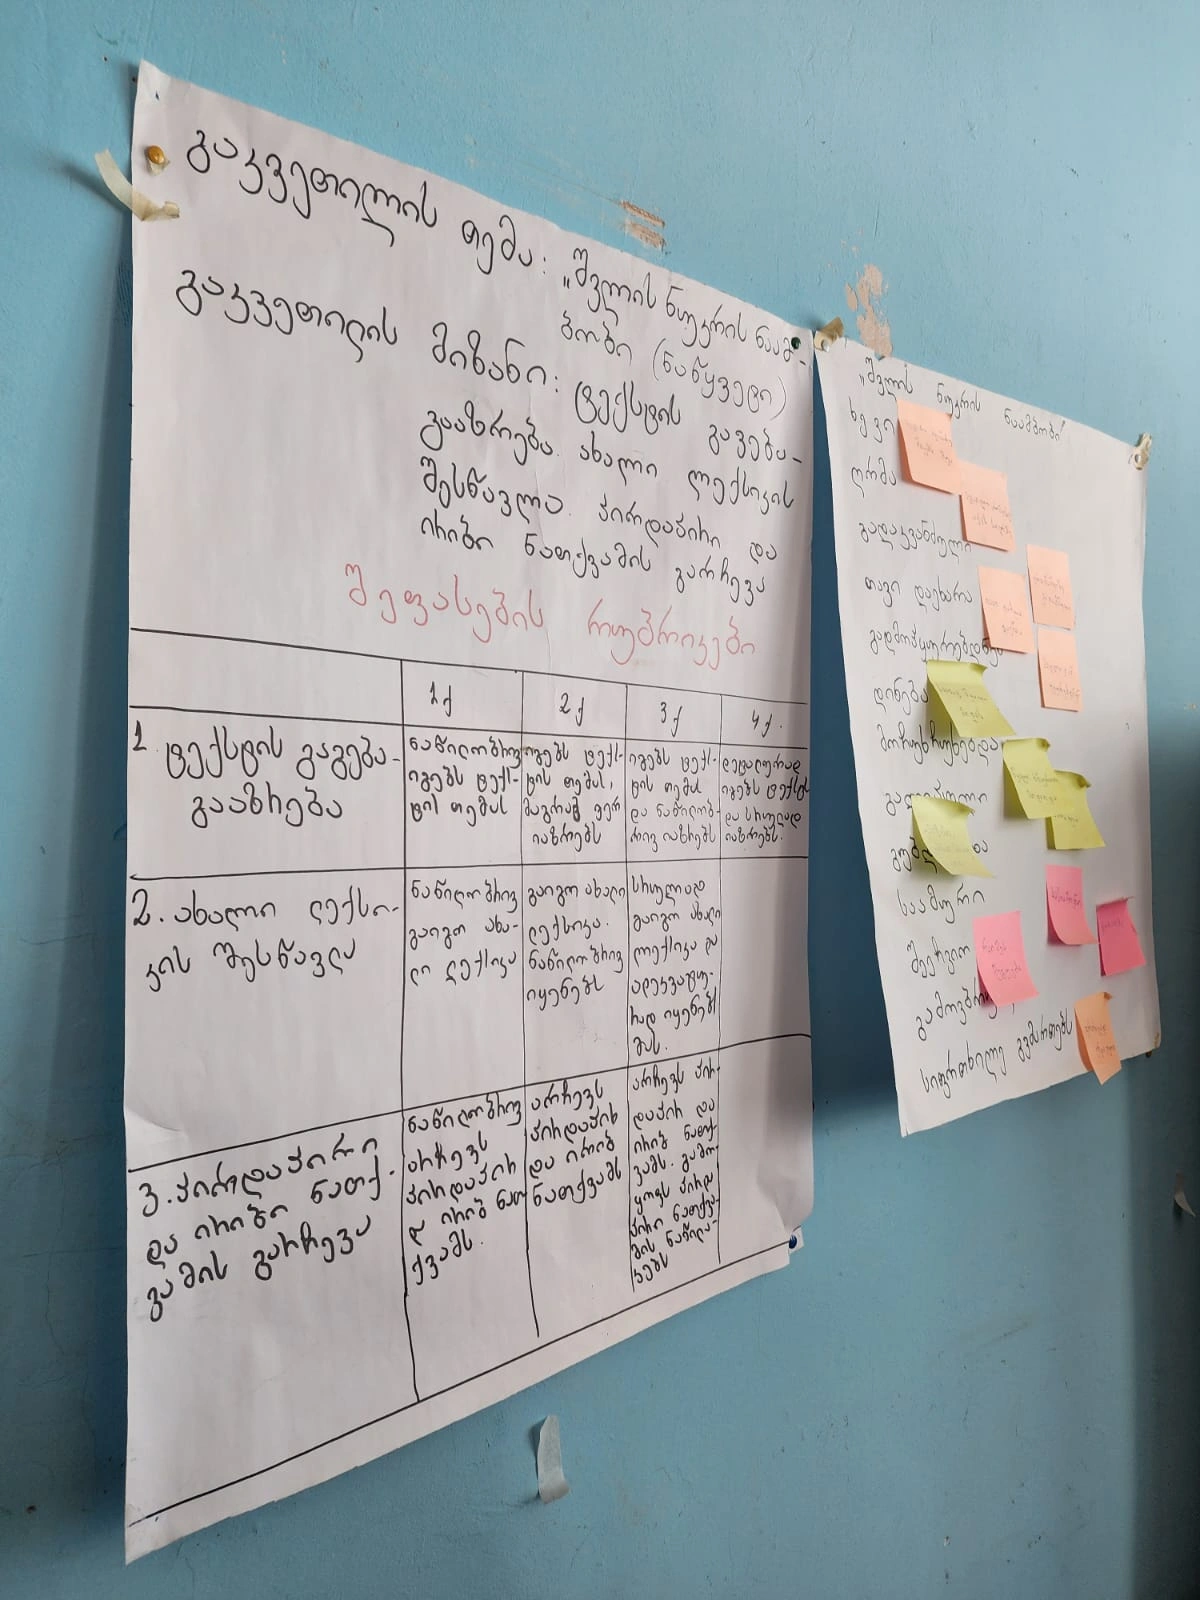 გაკვეთილის თემა: „შვლის ნუკრის ნაამ-
ბობი (ნაწყვეტი)
გაკვეთილის მიზანი: ტექსტის გაგება-
გააზრება. ახალი ლექსიკის
შესწავლა. პირდაპირი და
ირიბი ნათქვამის გარჩევა
შეფასების რუბრიკები
1ქ 2ქ 3ქ 4ქ.
1. ტექსტის გაგება-
გააზრება
ნაწილობრივ
იგებს ტექს-
ტის თემას
იგებს ტექს-
ტის თემას,
მაგრამ ვერ
იაზრებს
იგებს ტექს-
ტის თემას
და ნაწილობ-
რივ იაზრებს
დეტალურად
იგებს ტექსტს
და სრულად
იაზრებს.
2. ახალი ლექსი-
კის შესწავლა
ნაწილობრივ
გაიგო ახა-
ლი ლექსიკა
გაიგო ახალი
ლექსიკა.
ნაწილობრივ
იყენებს
სრულად
გაიგო ახალი
ლექსიკა და
ადეკვატუ-
რად იყენებს
მას.
3. პირდაპირი
და ირიბი ნათქ-
ვამის გარჩევა
ნაწილობრივ
არჩევს
პირდაპირ
დ ირიბ ნათ
ქვამს.
არჩევს
პირდაპირ
და ირიბ
ნათქვამს
არჩევს პირ-
დაპირ და
ირიბ ნათქ-
ვამს. გამო-
ყოფს პირდა
პირი ნათქვა-
მის ნაწილა-
კებს
„შვლის ნუკრის ნაამბობი“
ხევი
ღრმა
გადაკვანძული
თავი დაეხარა
გადმოჰყურებდნენ
დინება
მოჩუხჩუხებდა
საამური
შეერგო
სიფრთხილე გვმართებს